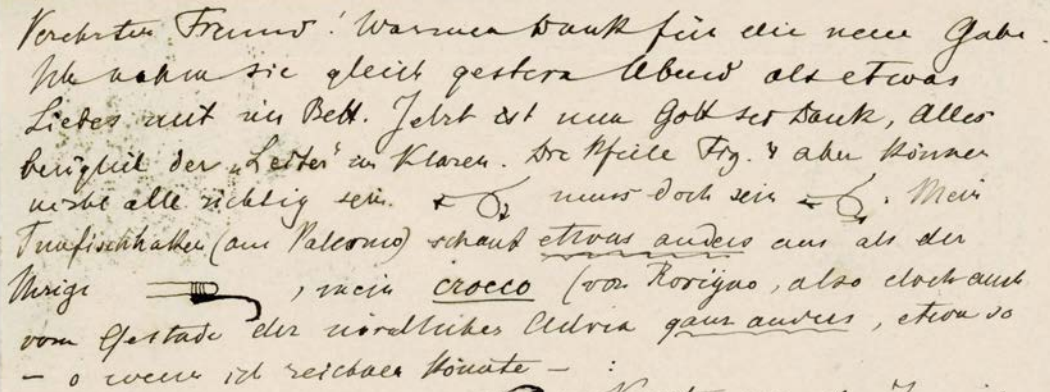 Verehrter Freund! Warmen Dank für die neue Gabe.
Ich nahm sie gleich gestern Abend als etwas
Liebes mit in Bett. Jetzt ist nun Gott sei Dank, Alles
bezüglich der „Leiter" im Klaren. Die Pfeile Fig. 4 aber können
nicht alle richtig sein. muss doch sein . Mein
Tunfischhaken (aus Palermo) schaut etwas anders aus als der
Ihrige , mein crocco (von Rovigno, also doch auch
vom Gestade der nördlichen Adria ganz anders, etwa so
– o wenn ich zeichnen könnte – :